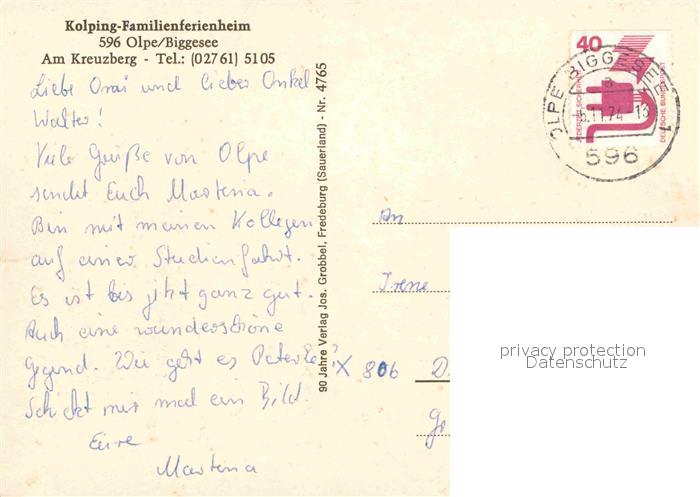 Kolping-Familienferienheim
596 Olpe/Biggesee
Am Kreuzberg - Tel.: (02761) 5105
Liebe Omi und lieber Onkel
Walter!
Viele Grüße von Olpe
sendet Euch Martina.
Bin mit meinen Kollegen
auf einer Studienfahrt.
Es ist bis jetzt ganz gut.
Auch eine wunderschöne
Gegend. Wie geht es
Schickt mir mal ein Bild.
Eure
Martina
90 Jahre Verlag Jos. Grobbel, Fredeburg (Sauerland) - Nr. 4765
40
JEDERZEIT SICHERHEIT
DEUTSCHE BUNDESPOST
OLPE BIGGESEE
.11.74-18
596
An
Irene
X 806 D
privacy protection
Datenschutz